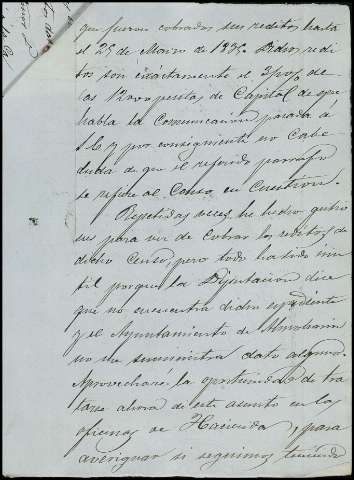 que fueron cobrados sus reditos hasta
el 25 de Marzo de 1835. Dichos redi
tos son exactamente el 3 po% de
las 12000 pesetas de Capital de que
habla la Comunicacion pasada á
y por consiguiente no Cabe
duda de que el referido parrafo
se refiere al Censo en Cuestion.
Repetidas veces he hecho gestio
nes para ver de cobrar los reditos de
dicho Censo, pero todo ha sido inu
til porque la Diputacion dice
que no encuentra dicho expediente
y el Ayuntamiento de
no me suministra dato alguno.
Aprovecharé la oportunidad de tra
tarse ahora de este asunto en las
oficinas de Hacienda, para
averiguar si seguimos teniendo